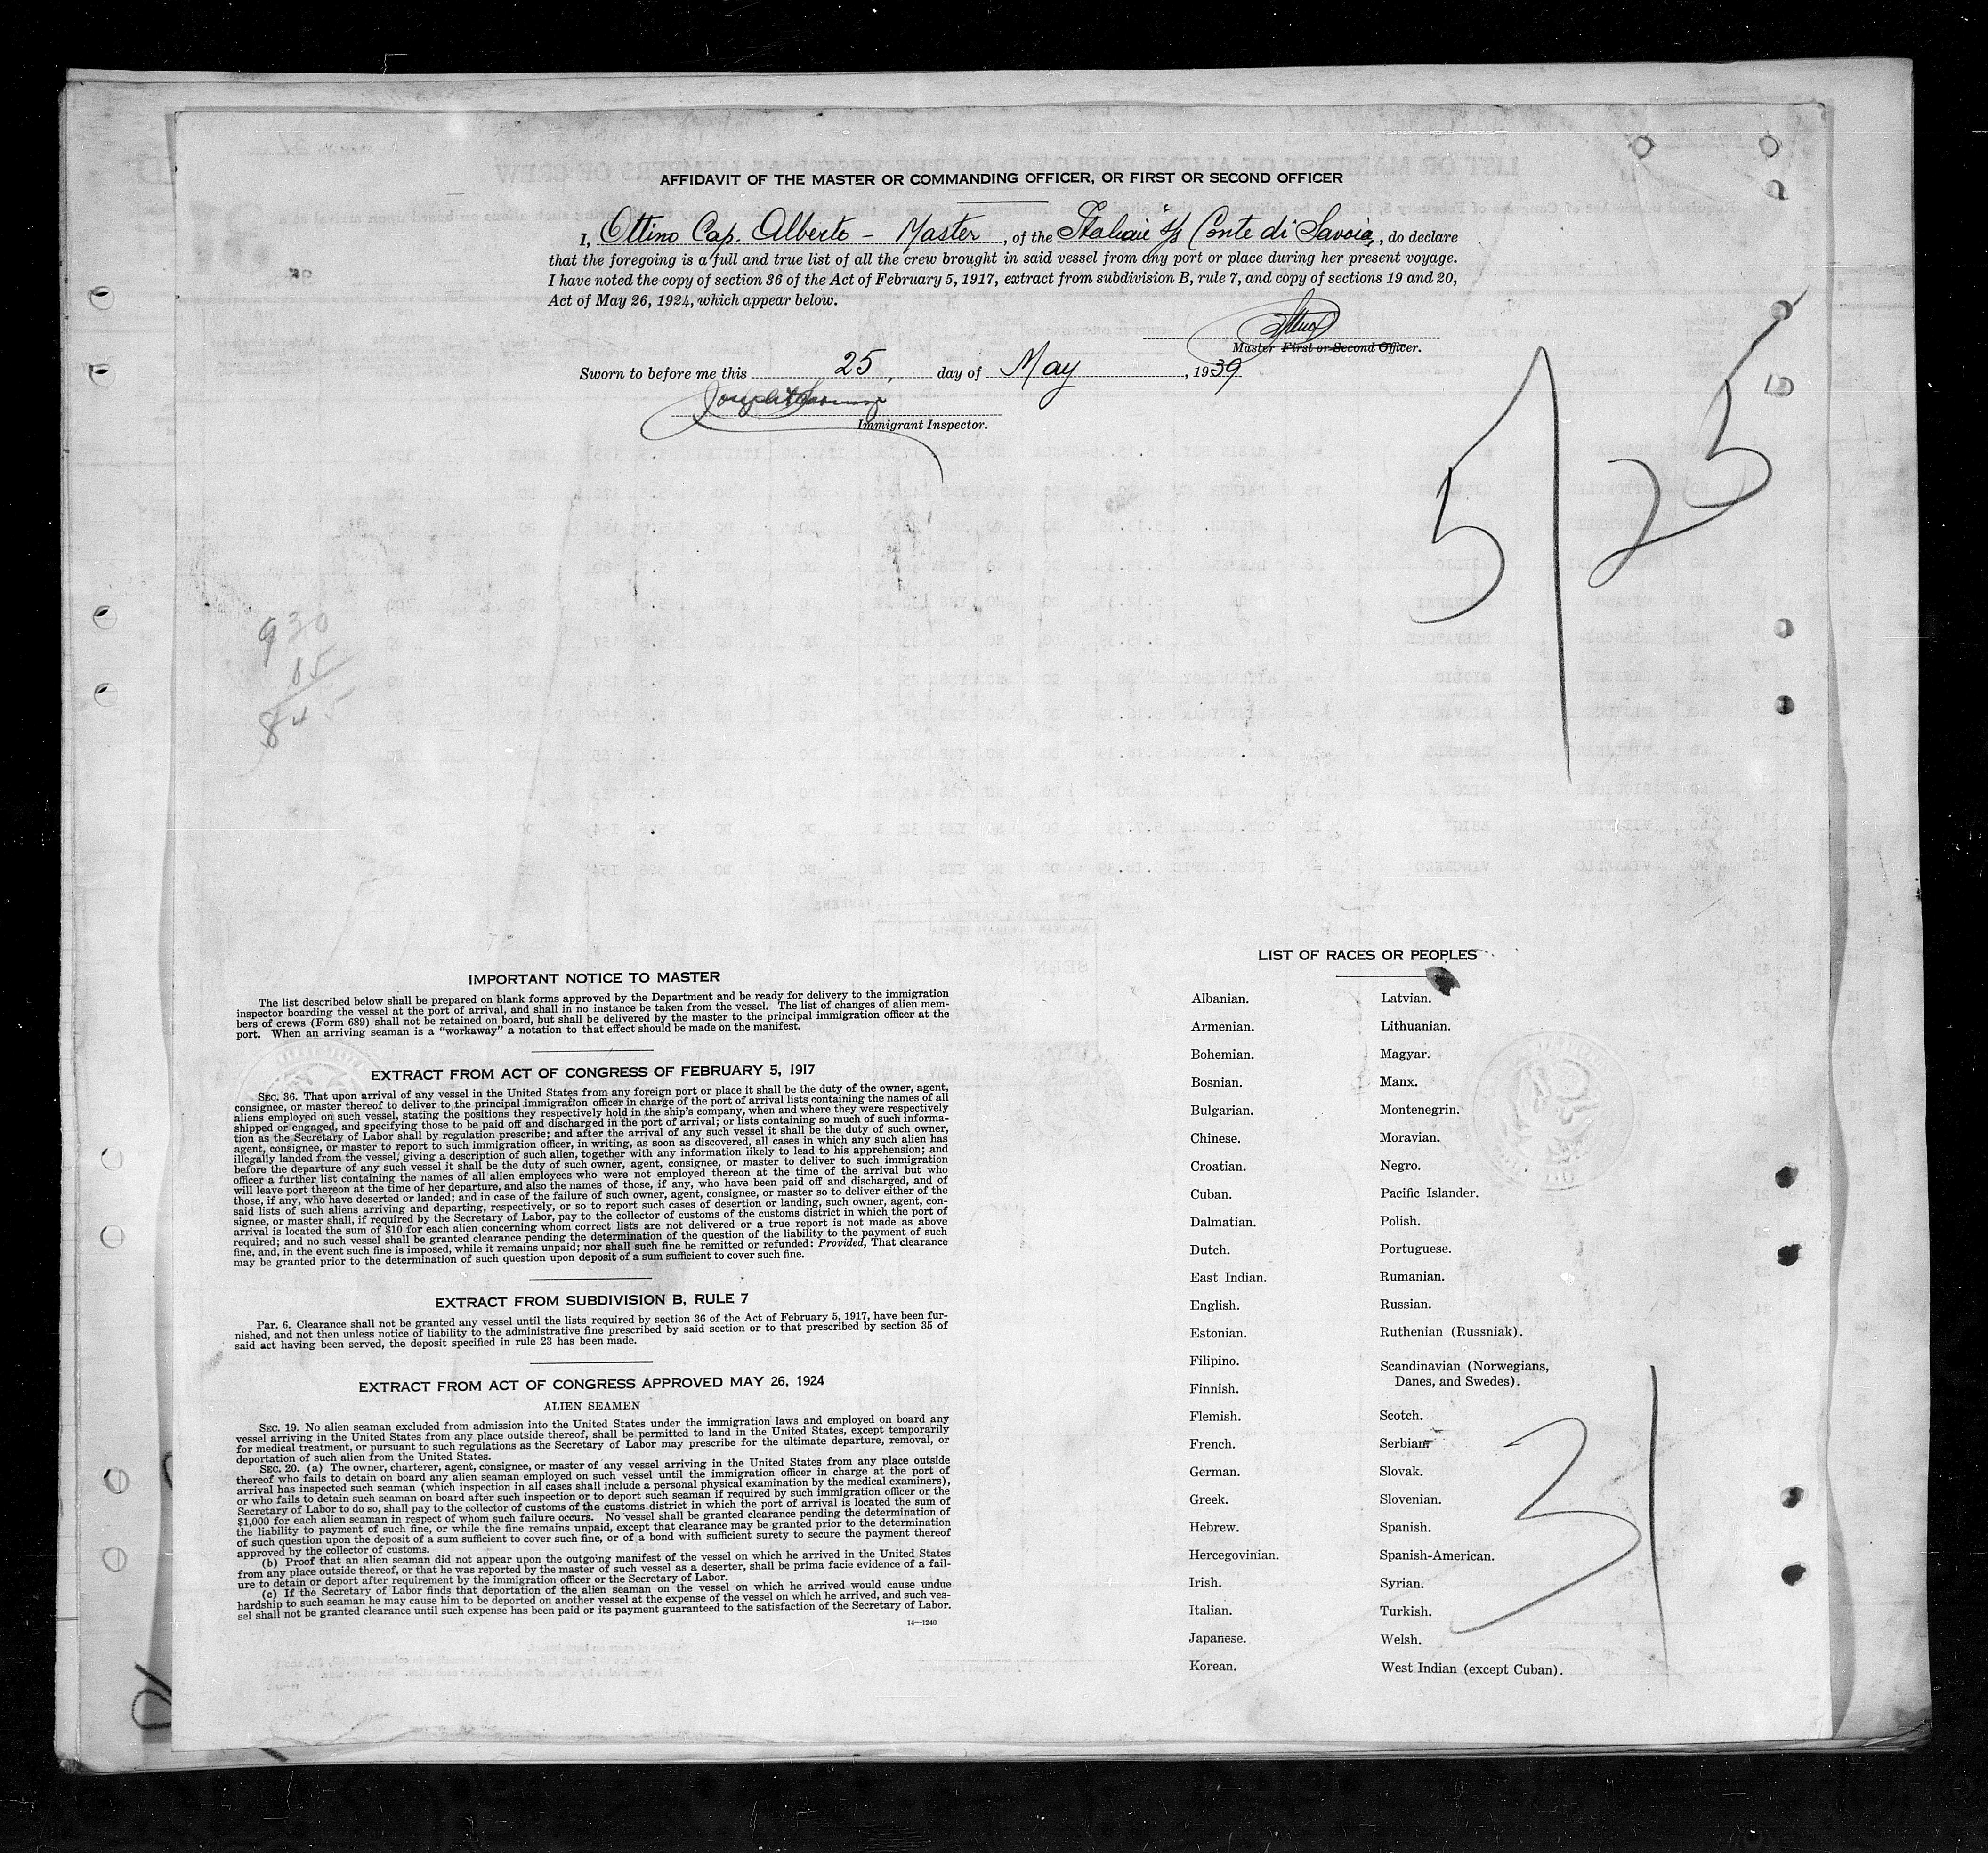 AFFIDAVIT OF THE MASTER OR COMMANDING OFFICER, OR FIRST OR SECOND OFFICER
I, Ottino Cap. Alberto - Master, of the Italian S/s "Conte di Savoia", do declare
that the foregoing is a full and true list of all the crew brought in said vessel from any port or place during her present voyage.
I have noted the copy of section 36 of the Act of February 5, 1917, extract from subdivision B, rule 7, and copy of sections 19 and 20,
Act of May 26, 1924, which appear below.
Master First or Second Officer.
Sworn to before me this 25, day of May, 1939
Immigrant Inspector.
5/25
930
85
845
IMPORTANT NOTICE TO MASTER
The list described below shall be prepared on blank forms approved by the Department and be ready for delivery to the immigration
inspector boarding the vessel at the port of arrival, and shall in no instance be taken from the vessel. The list of changes of alien mem-
bers of crews (Form 689) shall not be retained on board, but shall be delivered by the master to the principal immigration officer at the
port. When an arriving seaman is a "workaway" a notation to that effect should be made on the manifest.
EXTRACT FROM ACT OF CONGRESS OF FEBRUARY 5, 1917
SEC. 36. That upon arrival of any vessel in the United States from any foreign port or place it shall be the duty of the owner, agent,
consignee, or master thereof to deliver to the principal immigration officer in charge of the port of arrival lists containing the names of all
aliens employed on such vessel, stating the positions they respectively hold in the ship's company, when and where they were respectively
shipped or engaged, and specifying those to be paid off and discharged in the port of arrival; or lists containing so much of such informa-
tion as the Secretary of Labor shall by regulation prescribe; and after the arrival of any such vessel it shall be the duty of such owner,
agent, consignee, or master to report to such immigration officer, in writing, as soon as discovered, all cases in which any such alien has
illegally landed from the vessel, giving a description of such alien, together with any information likely to lead to his apprehension; and
before the departure of any such vessel it shall be the duty of such owner, agent, consignee, or master to deliver to such immigration
officer a further list containing the names of all alien employees who were not employed thereon at the time of the arrival but who
will leave port thereon at the time of her departure, and also the names of those, if any, who have been paid off and discharged, and of
those, if any, who have deserted or landed; and in case of the failure of such owner, agent, consignee, or master so to deliver either of the
said lists of such aliens arriving and departing, respectively, or so to report such cases of desertion or landing, such owner, agent, con-
signee, or master shall, if required by the Secretary of Labor, pay to the collector of customs of the customs district in which the port of
arrival is located the sum of $10 for each alien concerning whom correct lists are not delivered or a true report is not made as above
required; and no such vessel shall be granted clearance pending the determination of the question of the liability to the payment of such
fine, and, in the event such fine is imposed, while it remains unpaid; nor shall such fine be remitted or refunded: Provided, That clearance
may be granted prior to the determination of such question upon deposit of a sum sufficient to cover such fine.
EXTRACT FROM SUBDIVISION B, RULE 7
Par. 6. Clearance shall not be granted any vessel until the lists required by section 36 of the Act of February 5, 1917, have been fur-
nished, and not then unless notice of liability to the administrative fine prescribed by said section or to that prescribed by section 35 of
said act having been served, the deposit specified in rule 23 has been made.
EXTRACT FROM ACT OF CONGRESS APPROVED MAY 26, 1924
ALIEN SEAMEN
SEC. 19. No alien seaman excluded from admission into the United States under the immigration laws and employed on board any
vessel arriving in the United States from any place outside thereof, shall be permitted to land in the United States, except temporarily
for medical treatment, or pursuant to such regulations as the Secretary of Labor may prescribe for the ultimate departure, removal, or
deportation of such alien from the United States.
SEC. 20. (a) The owner, charterer, agent, consignee, or master of any vessel arriving in the United States from any place outside
thereof who fails to detain on board any alien seaman employed on such vessel until the immigration officer in charge at the port of
arrival has inspected such seaman (which inspection in all cases shall include a personal physical examination by the medical examiners),
or who fails to detain such seaman on board after such inspection or to deport such seaman if required by such immigration officer or the
Secretary of Labor to do so, shall pay to the collector of customs of the customs district in which the port of arrival is located the sum of
$1,000 for each alien seaman in respect of whom such failure occurs. No vessel shall be granted clearance pending the determination of
the liability to payment of such fine, or while the fine remains unpaid, except that clearance may be granted prior to the determination
of such question upon the deposit of a sum sufficient to cover such fine, or of a bond with sufficient surety to secure the payment thereof
approved by the collector of customs.
(b) Proof that an alien seaman did not appear upon the outgoing manifest of the vessel on which he arrived in the United States
from any place outside thereof, or that he was reported by the master of such vessel as a deserter, shall be prima facie evidence of a fail-
ure to detain or deport after requirement by the immigration officer or the Secretary of Labor.
(c) If the Secretary of Labor finds that deportation of the alien seaman on the vessel on which he arrived would cause undue
hardship to such seaman he may cause him to be deported on another vessel at the expense of the vessel on which he arrived, and such ves-
sel shall not be granted clearance until such expense has been paid or its payment guaranteed to the satisfaction of the Secretary of Labor.
14—1240
LIST OF RACES OR PEOPLES
Albanian.
Armenian.
Bohemian.
Bosnian.
Bulgarian.
Chinese.
Croatian.
Cuban.
Dalmatian.
Dutch.
East Indian.
English.
Estonian.
Filipino.
Finnish.
Flemish.
French.
German.
Greek.
Hebrew.
Hercegovinian.
Irish.
Italian.
Japanese.
Korean.
Latvian.
Lithuanian.
Magyar.
Manx.
Montenegrin.
Moravian.
Negro.
Pacific Islander.
Polish.
Portuguese.
Rumanian.
Russian.
Ruthenian (Russniak).
Scandinavian (Norwegians,
Danes, and Swedes).
Scotch.
Serbian.
Slovak.
Slovenian.
Spanish.
Spanish-American.
Syrian.
Turkish.
Welsh.
West Indian (except Cuban).
31